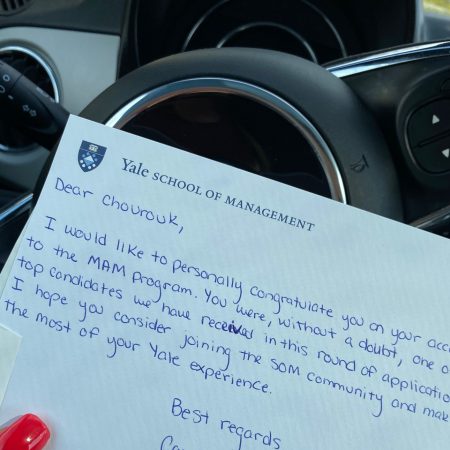 Yale SCHOOL OF MANAGEMENT
Dear Chourouk,
I would like to personally congratulate you on your
to the MAM program. You were, without a doubt, one
top candidates we have received in this round of
I hope you consider joining the SOM community and
the most of your Yale experience.
Best regards